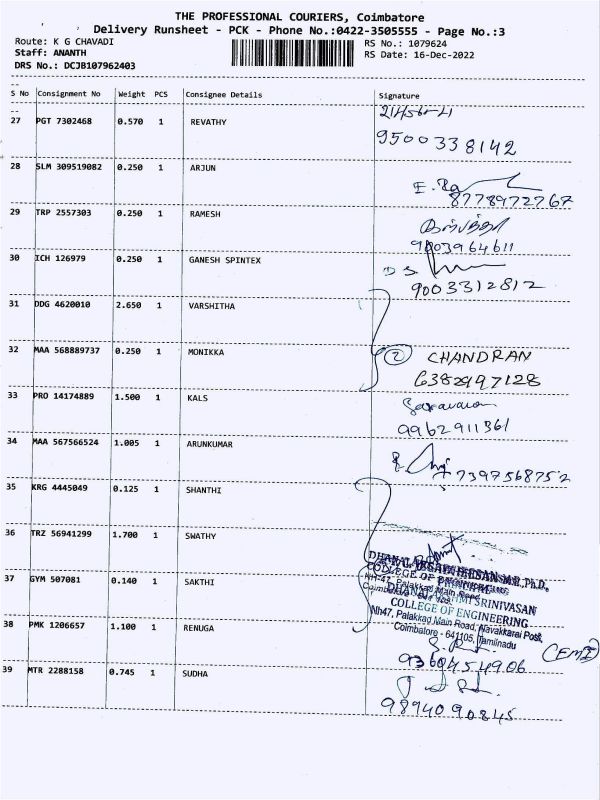 THE PROFESSIONAL COURIERS, Coimbatore
Delivery Runsheet - PCK - Phone No.:0422-3505555 - Page No.:3
Route: K G CHAVADI
RS No.: 1079624
Staff: ANANTH
RS Date: 16-Dec-2022
DRS No.: DCJB107962403
S No Consignment No Weight PCS Consignee Details Signature
27 PGT 7302468 0.570 1 REVATHY
9500338142
28 SLM 309519082 0.250 1 ARJUN
8778972767
29 TRP 2557303 0.250 1 RAMESH
9003964611
30 ICH 126979 0.250 1 GANESH SPINTEX
9003312812
31 DDG 4620010 2.650 1 VARSHITHA
32 MAA 568889737 0.250 1 MONIKKA
2 CHANDRAN
6382997128
33 PRO 14174889 1.500 1 KALS
Saravanan
9962911361
34 MAA 567566524 1.005 1 ARUNKUMAR
7397568752
35 KRG 4445049 0.125 1 SHANTHI
36 TRZ 56941299 1.700 1 SWATHY
37 GYM 507081 0.140 1 SAKTHI
DHANALAKSHMI SRINIVASAN
COLLEGE OF ENGINEERING
NH47, Palakkad Main Road, Navakkarai Post,
Coimbatore - 641105, Tamilnadu
38 PMK 1206657 1.100 1 RENUGA
9360454906
39 MTR 2288158 0.745 1 SUDHA
9894090845